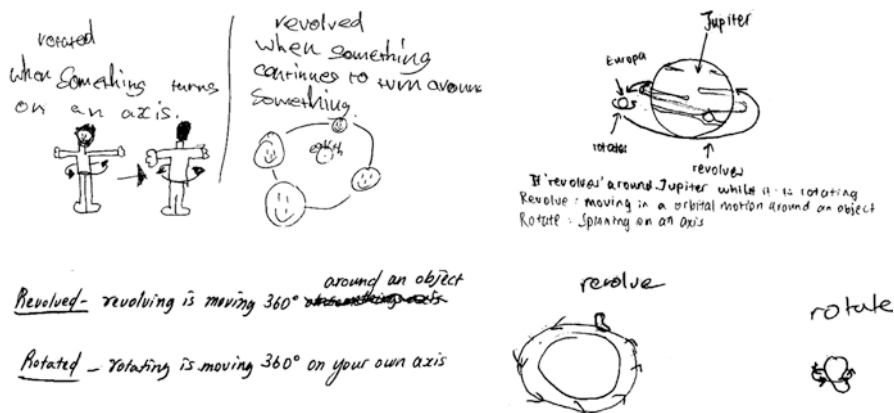 rotated
when something turns
on an axis.
revolved
when something
continues to turn around
something.
earth
Jupiter
Europa
rotates
revolves
It 'revolves' around Jupiter whilst it is rotating
Revolve : moving in a orbital motion around an object
Rotate : Spinning on an axis
around an object
Revolved- revolving is moving 360°
Rotated - rotating is moving 360° on your own axis
revolve
rotate